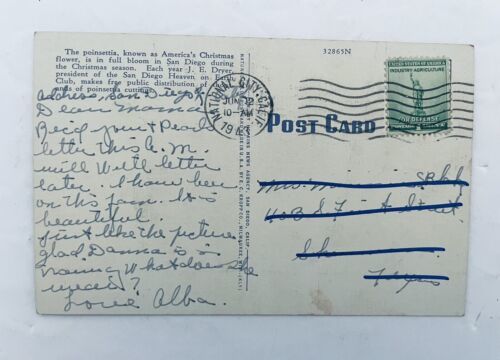 The poinsettia, known as America's Christmas
flower, is in full bloom in San Diego during
the Christmas season. Each year J. E. Dryer,
president of the San Diego Heaven on Earth
Club, makes free public distribution of
ands of poinsettia cutting
address, San Diego
Dear Mama
Rec'd your & Pearls
letter this A.M.
will write letter
later. I have been
on this farm. It is
beautiful.
just like the picture
glad Danna is in
What does she
need?
Love Alba.
32865N
NATIONAL CITY, CALIF.
JUN 12
10-AM
194
POST CARD
UNITED STATES OF AMERICA
INDUSTRY AGRICULTURE
FOR DEFENSE
Texas